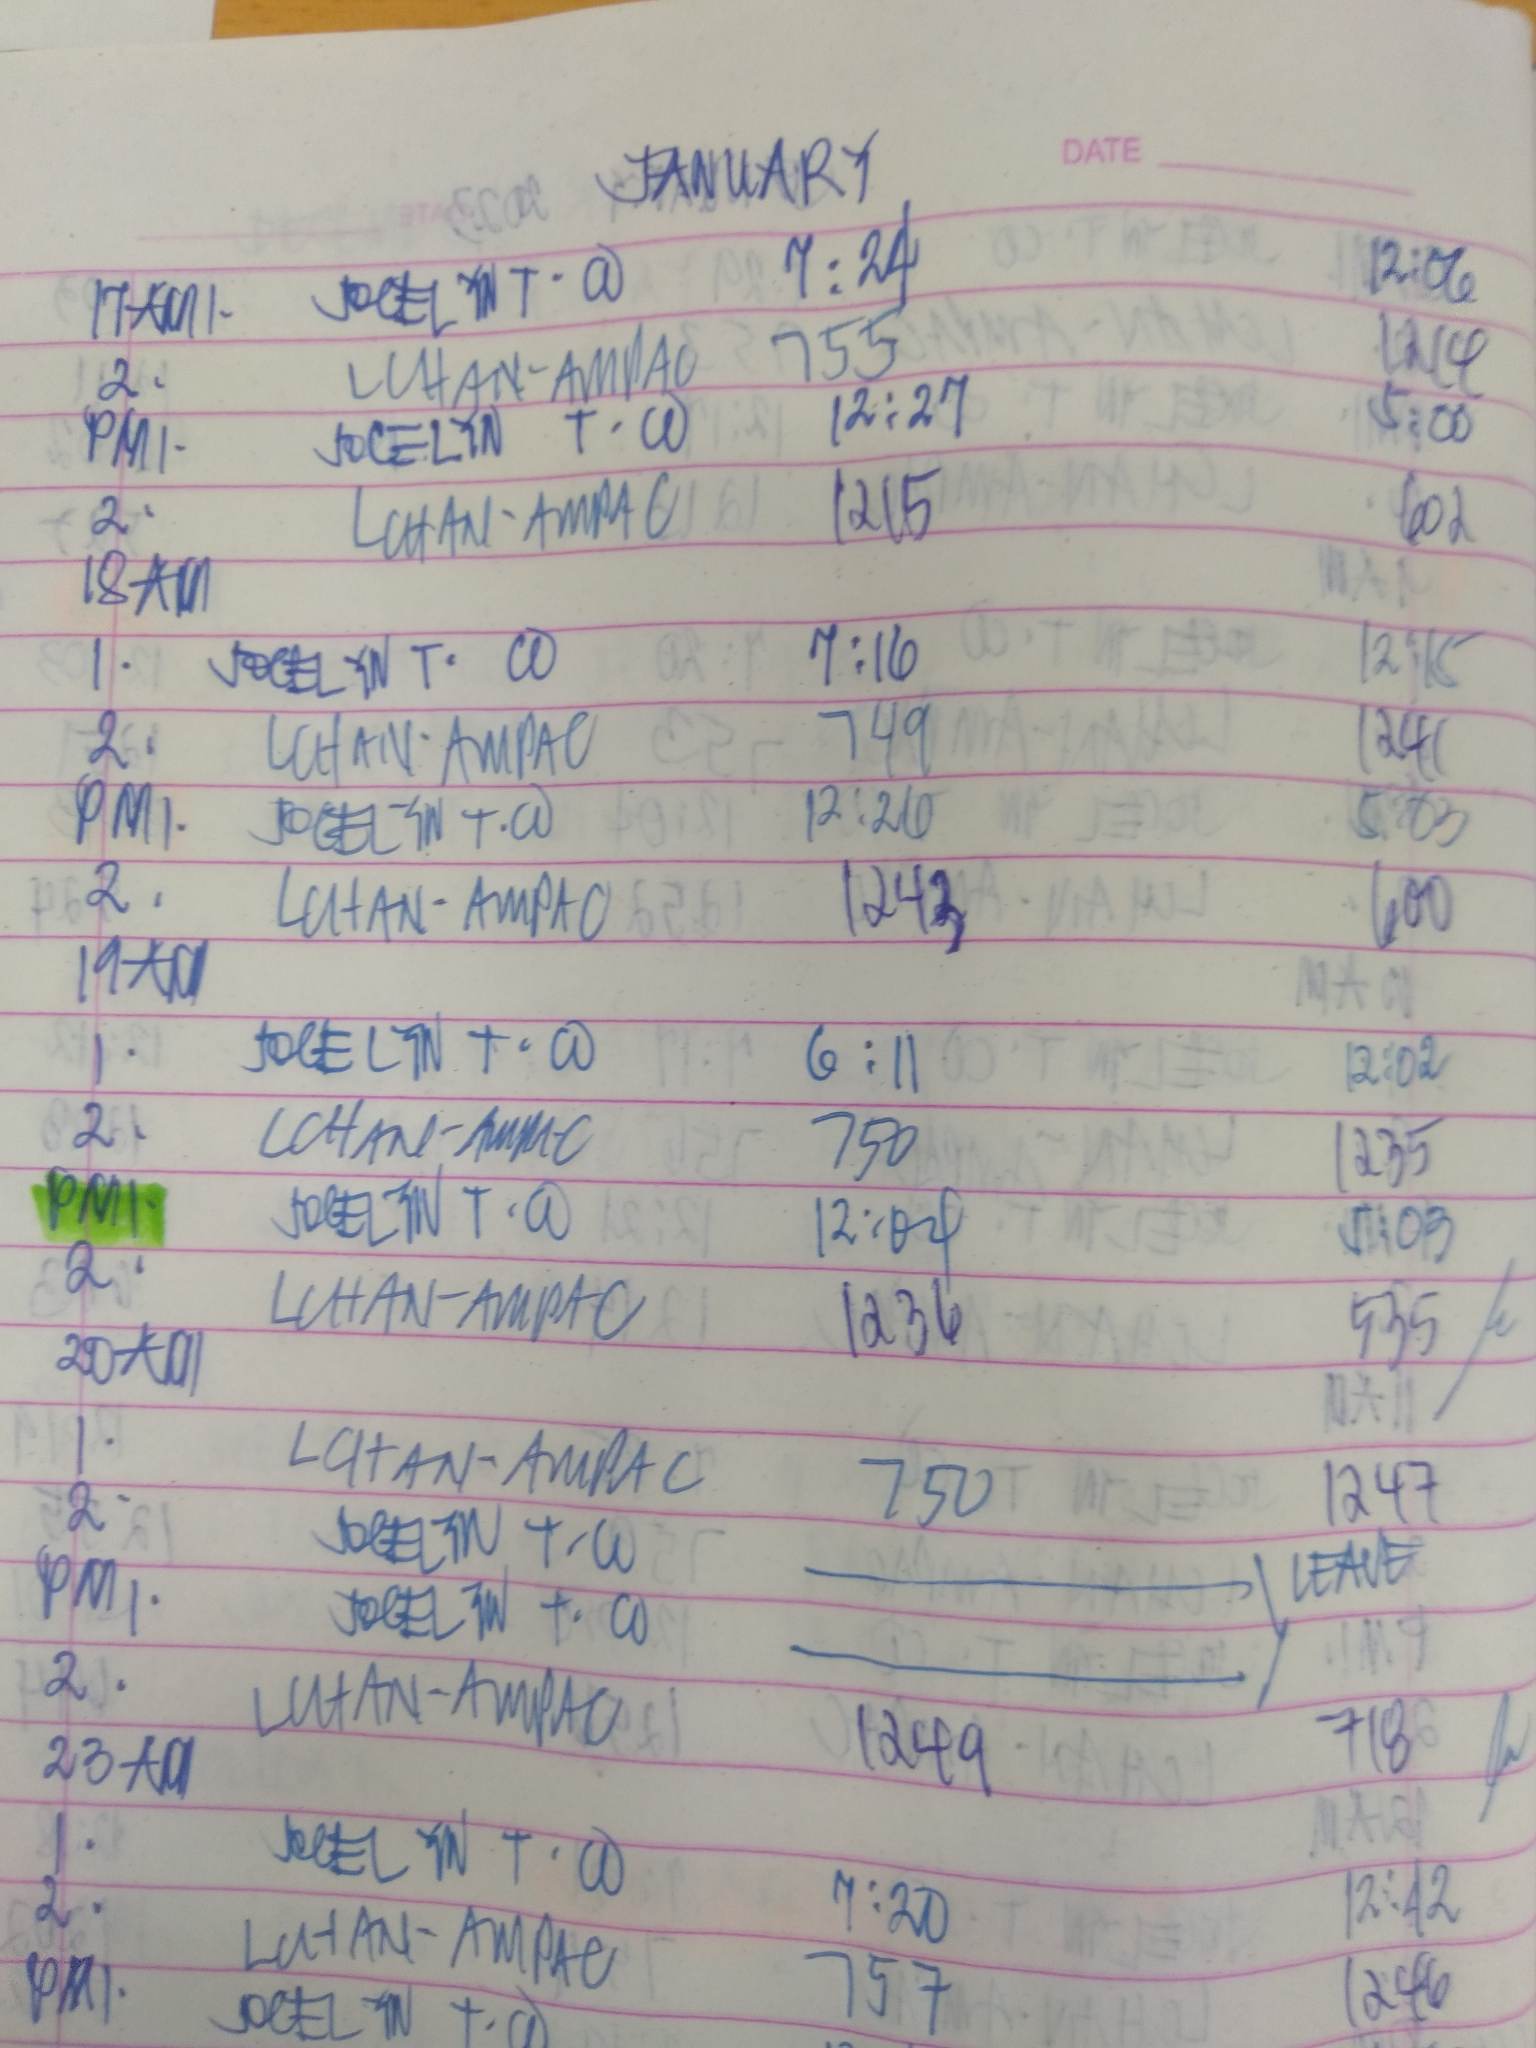 JANUARY
DATE
17 AM 1. JOCELYN T. CO 7:24 12:06
2. LCHAN-AMPAC 755 1214
PM 1. JOCELYN T. CO 12:27 5:00
2. LCHAN-AMPAC 1215 602
18 AM
1. JOCELYN T. CO 7:16 12:15
2. LCHAN-AMPAC 749 1241
PM 1. JOCELYN T. CO 12:26 5:03
2. LCHAN-AMPAC 1242 600
19 AM
1. JOCELYN T. CO 6:11 12:02
2. LCHAN-AMPAC 750 1235
PM 1. JOCELYN T. CO 12:04 5:03
2. LCHAN-AMPAC 1236 535
20 AM
1. LCHAN-AMPAC 750 1247
2. JOCELYN T. CO LEAVE
PM 1. JOCELYN T. CO
2. LCHAN-AMPAC 1249 718
23 AM
1. JOCELYN T. CO 7:20 12:42
2. LCHAN-AMPAC 757 1246
PM 1. JOCELYN T. CO